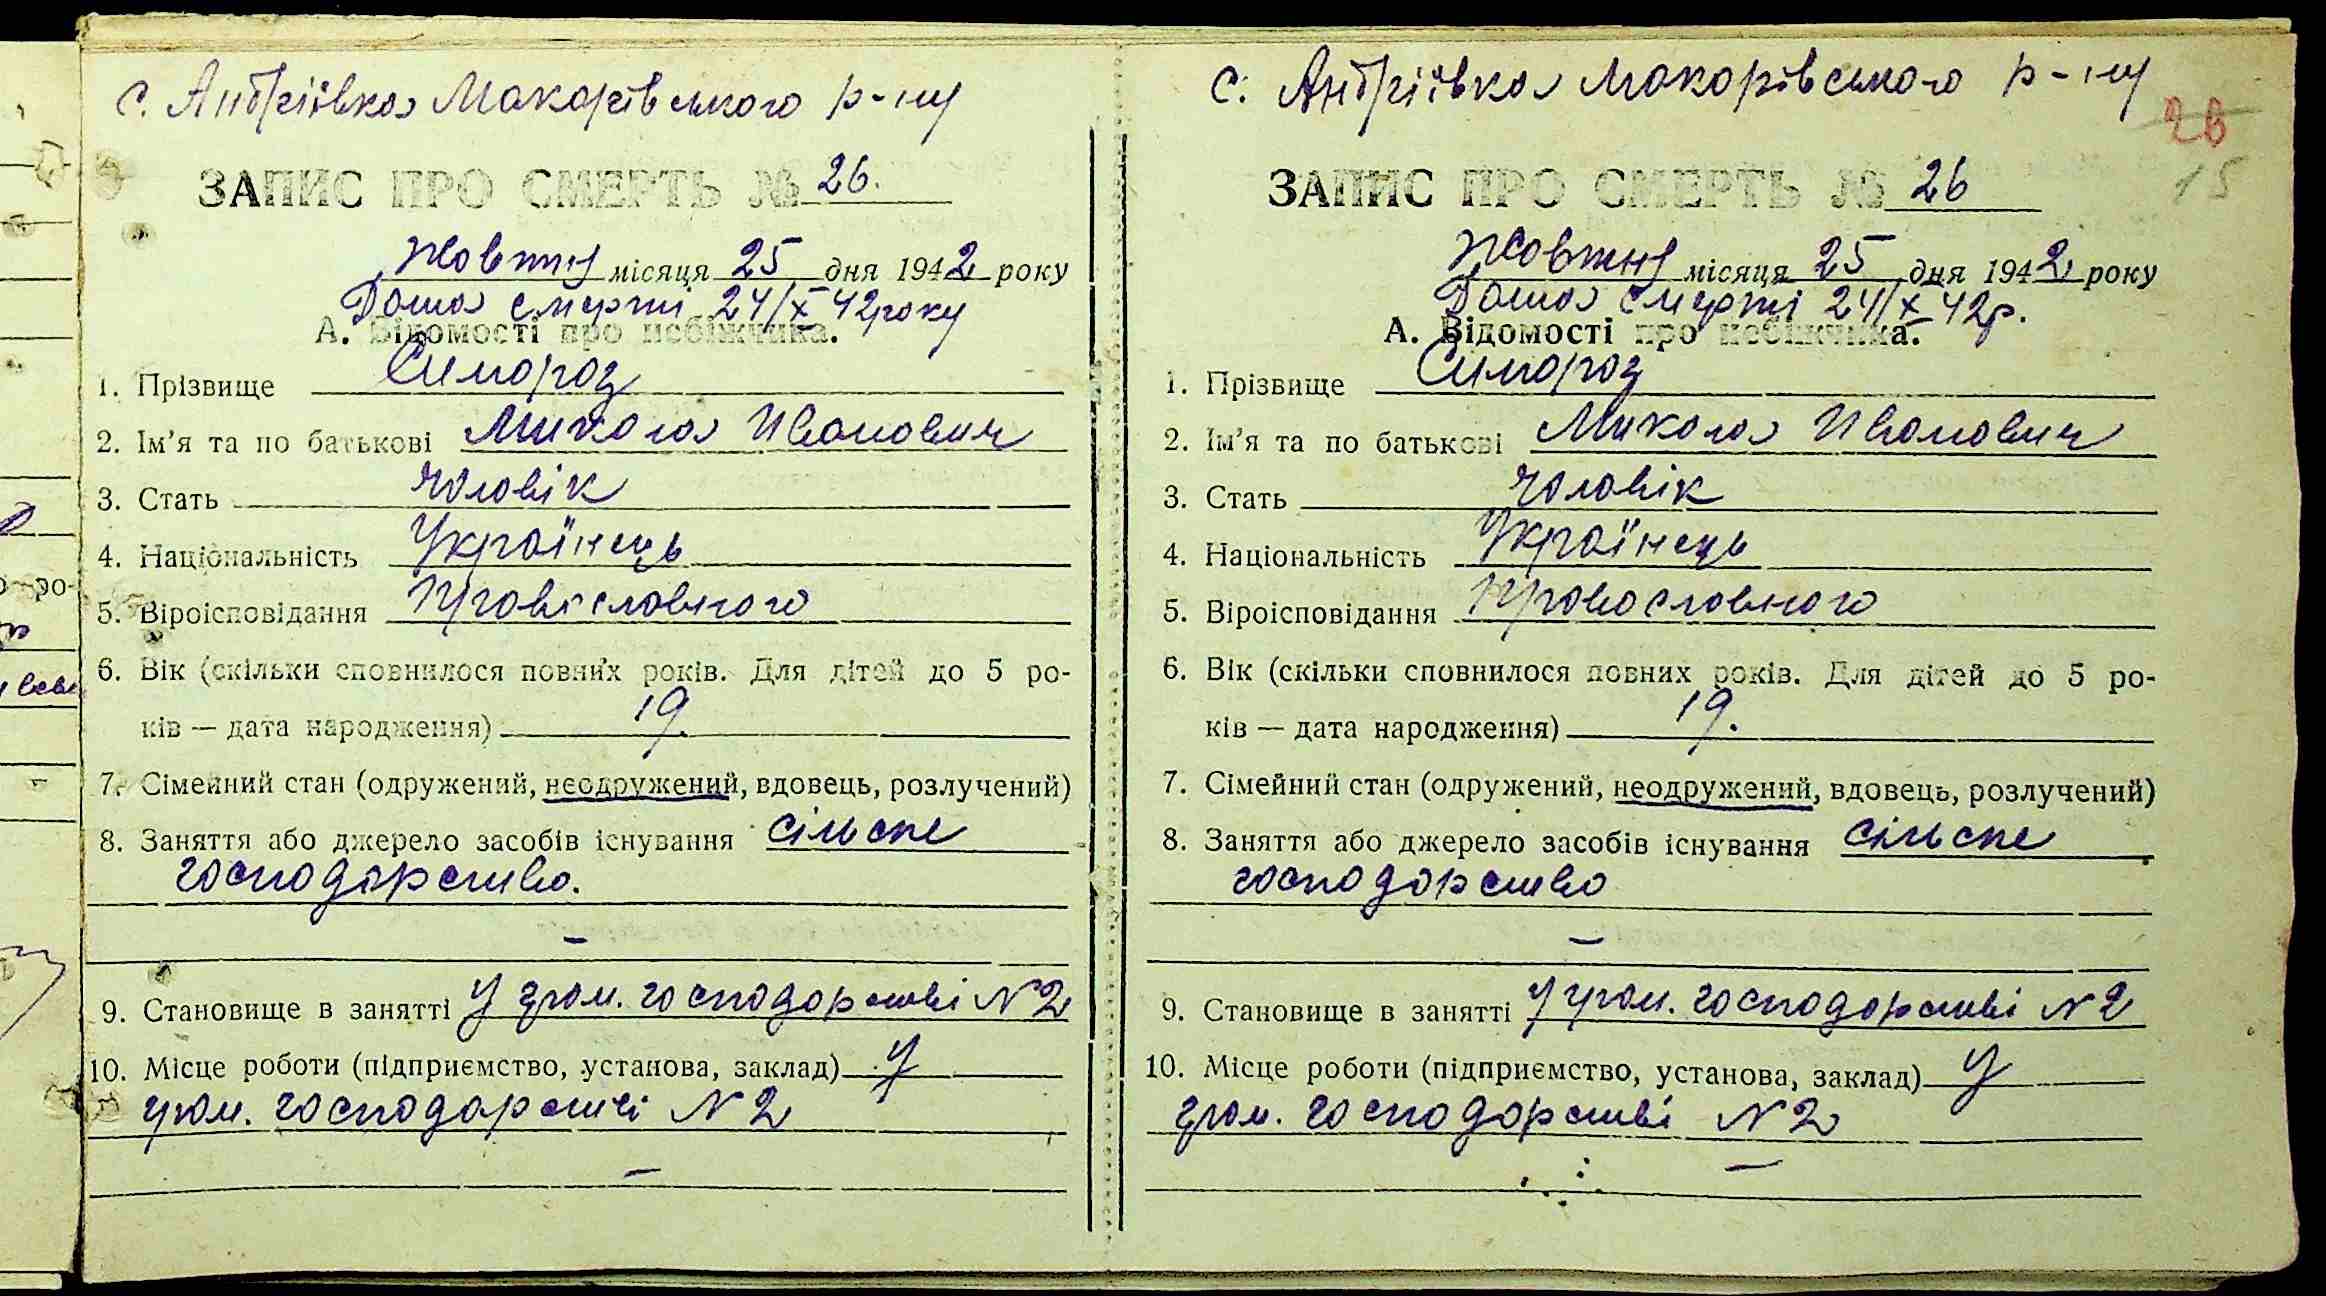 с. Андріївка Макарівського р-ну
ЗАПИС ПРО СМЕРТЬ № 26.
Жовтня місяця 25 дня 1942 року
Дата смерті 24/X 42 року
А. Відомості про небіжчика.
1. Прізвище Симороз
2. Ім'я та по батькові Микола Иванович
3. Стать чоловік
4. Національність Українець
5. Віроісповідання Православного
6. Вік (скільки сповнилося повних років. Для дітей до 5 ро-
ків — дата народження) 19.
7. Сімейний стан (одружений, неодружений, вдовець, розлучений)
8. Заняття або джерело засобів існування сільське
господарство.
—
9. Становище в занятті У гром. господарстві N 2
10. Місце роботи (підприємство, установа, заклад) У
гром. господарстві N 2
—
с. Андріївка Макарівського р-ну
26
15
ЗАПИС ПРО СМЕРТЬ № 26
Жовтня місяця 25 дня 1942 року
Дата смерті 24/X 42р.
А. Відомості про небіжчика.
1. Прізвище Симороз
2. Ім'я та по батькові Микола Иванович
3. Стать чоловік
4. Національність Українець
5. Віроісповідання Православного
6. Вік (скільки сповнилося повних років. Для дітей до 5 ро-
ків — дата народження) 19.
7. Сімейний стан (одружений, неодружений, вдовець, розлучений)
8. Заняття або джерело засобів існування сільське
господарство
—
9. Становище в занятті У гром. господарстві N 2
10. Місце роботи (підприємство, установа, заклад) У
гром. господарстві N 2
—